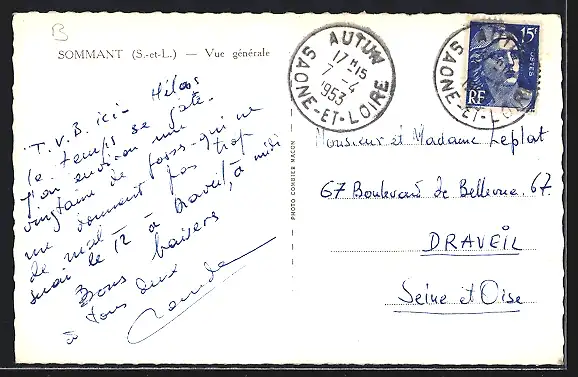 B
SOMMANT (S.-et-L.) — Vue générale
T.V.B. ici - Hélas
le temps se gâte.
J'ai environ une
vingtaine de gosses qui ne
me donnent pas trop
de mal - à midi
serai le 12 à Draveil,
Bons baisers
à tous deux
PHOTO COMBIER MACON
AUTUN
17H15
7-4
1953
SAONE-ET-LOIRE
AUTUN
SAONE-ET-LOIRE
15F
POSTES
RF
Monsieur et Madame Leplat
67 Boulevard de Bellevue. 67.
DRAVEIL
Seine et Oise